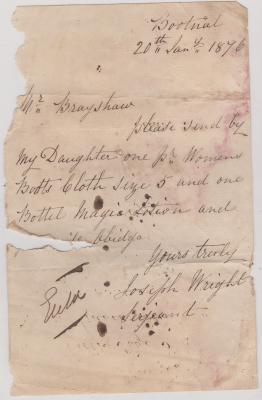 Bootnal
20th Jany 1876
Mr Brayshaw
please send by
My Daughter one pr Womens
Boots Cloth Size 5 and one
Bottel Magic Lotion and
Yours truly
Joseph Wright
Sergeant